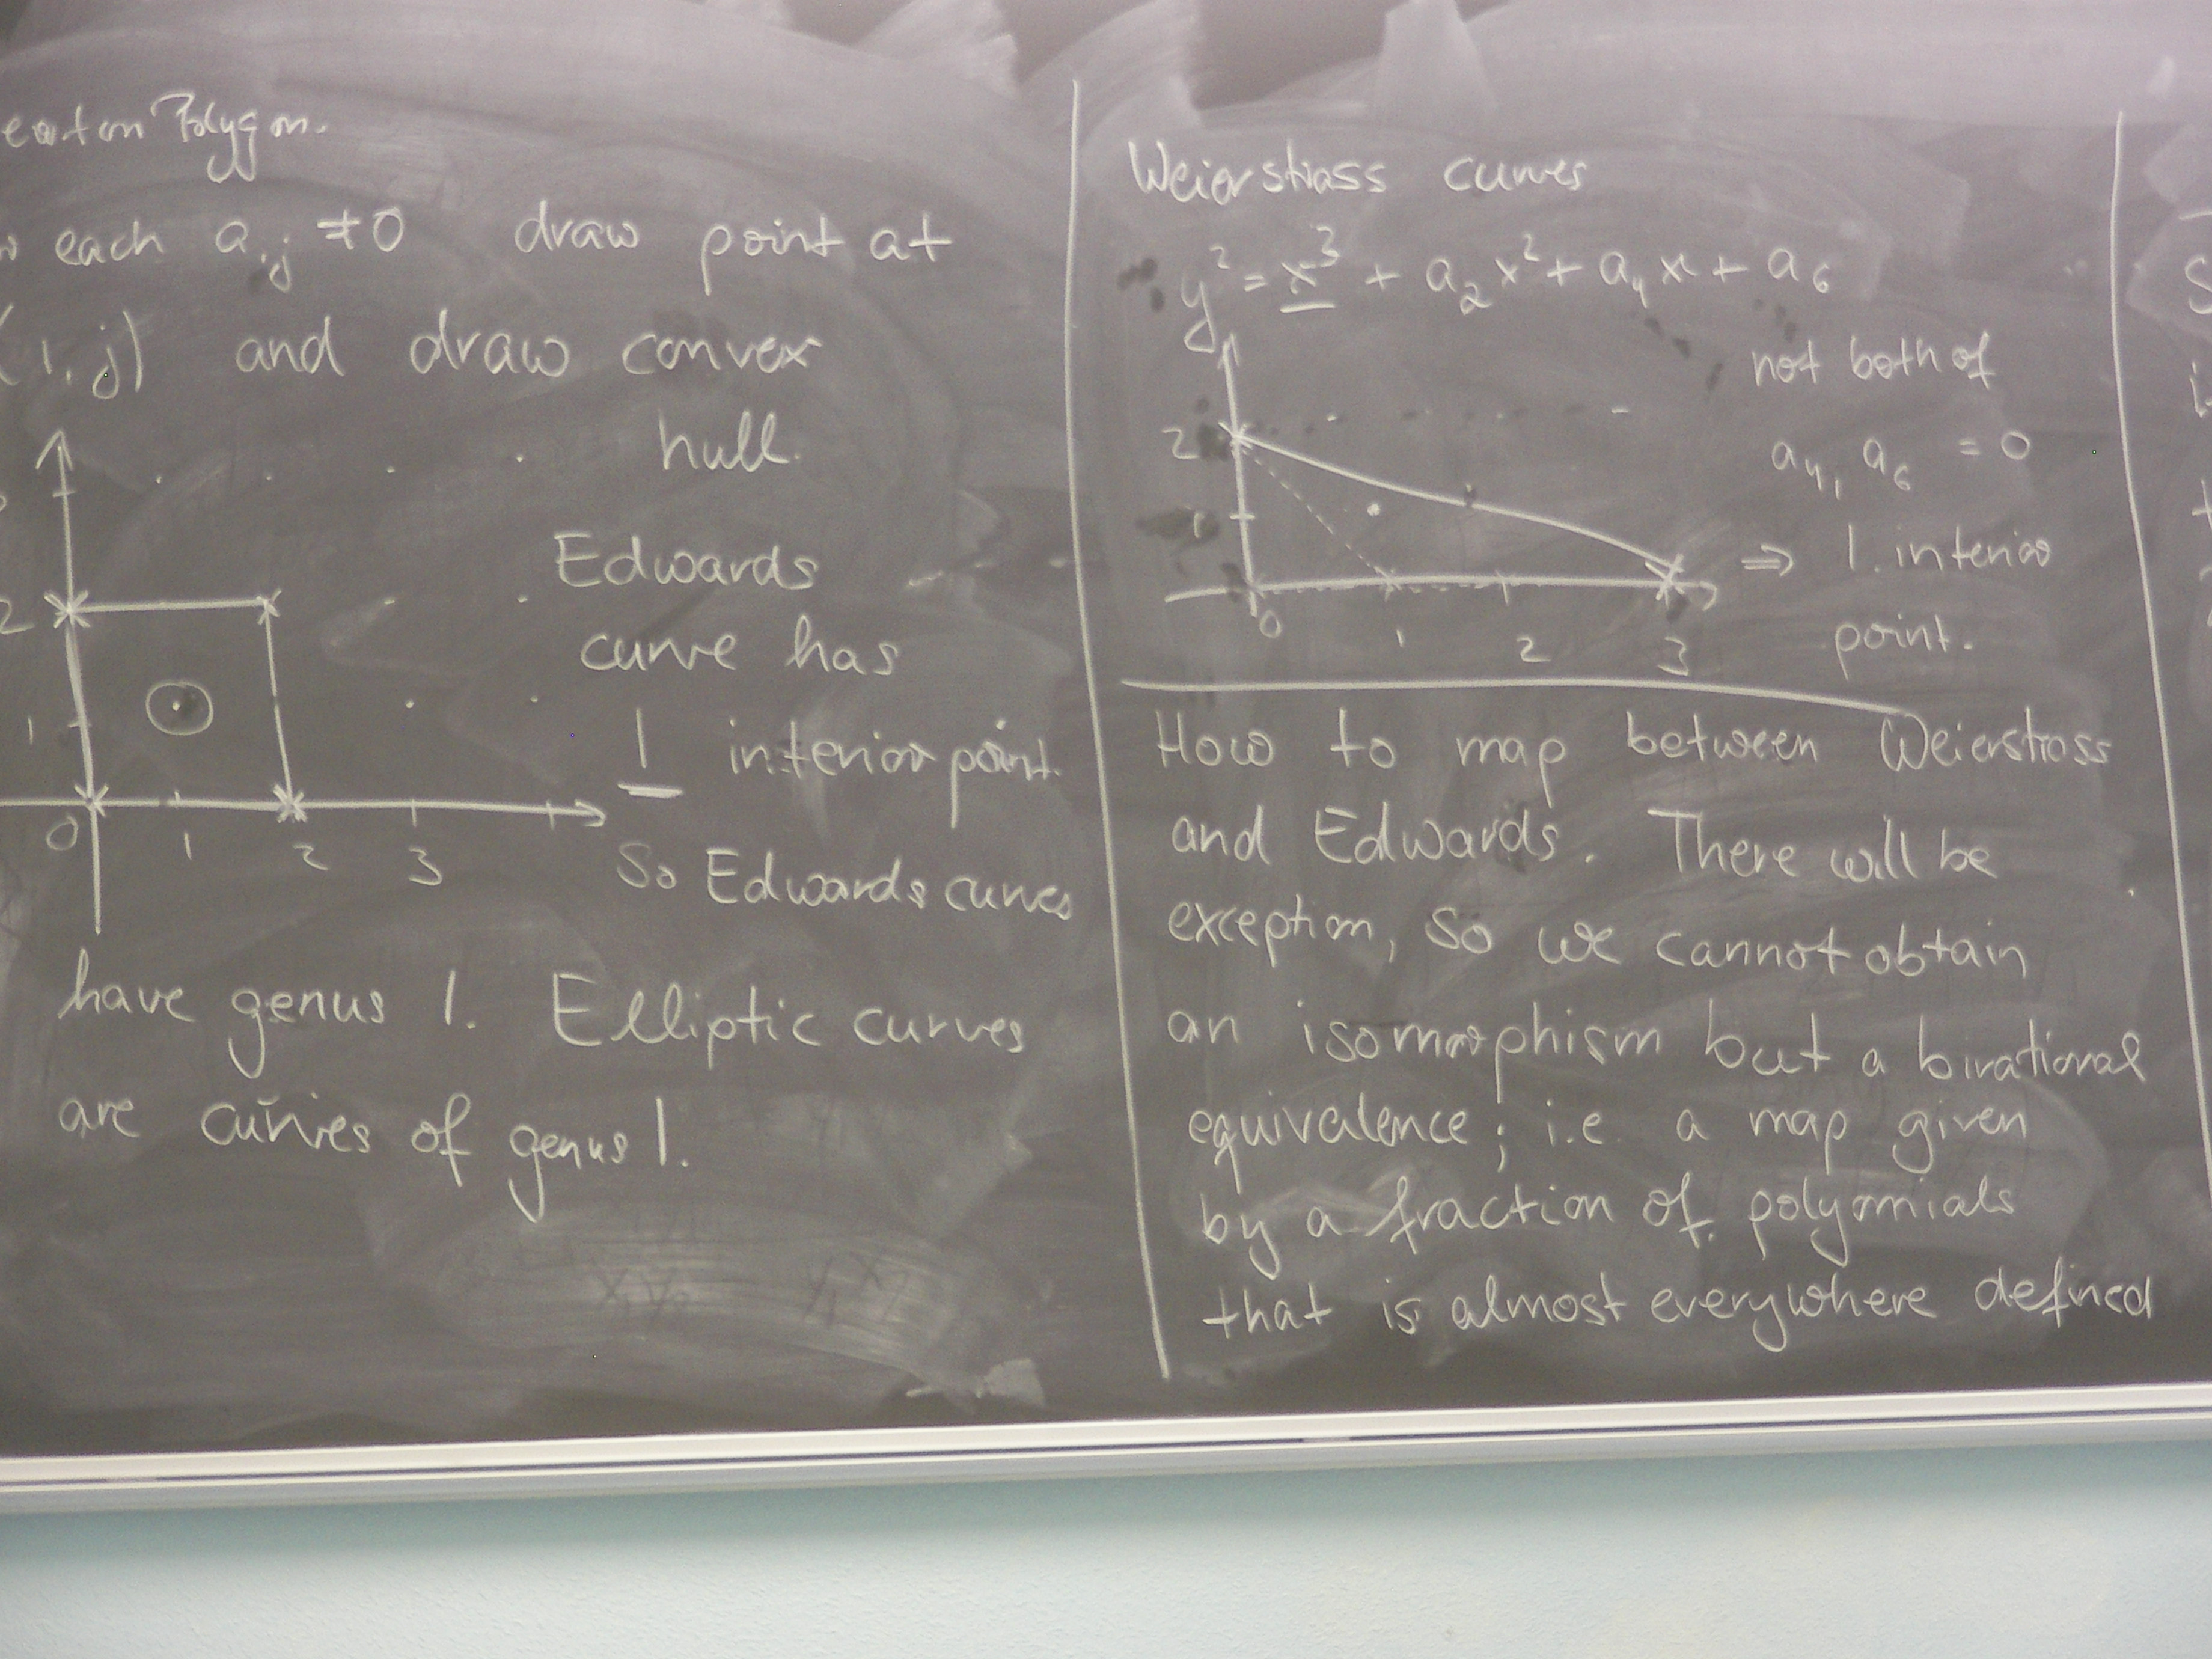 ewton Polygon.
each aij ≠0 draw point at
(i,j) and draw convex
hull.
Edwards
2
curve has
1
1 interior point.
0
1 2 3
So Edwards curves
have genus 1. Elliptic curves
are curves of genus 1.
Weierstrass curves
y² = x³ + a₂x² + a₄x + a₆
not both of
2
a₄, a₆ = 0
1
⇒ 1. interior
0
1 2 3
point.
How to map between Weierstrass
and Edwards. There will be
exception, so we cannot obtain
an isomorphism but a birational
equivalence; i.e. a map given
by a fraction of polyomials
that is almost everywhere defined